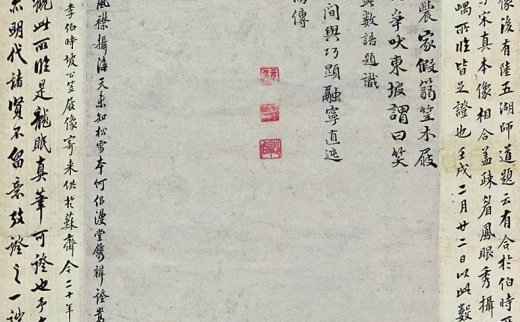 像後有陸五湖師道題云有合於伯時
宋真本像相合蓋疎眉鳳眼秀攝
嵎所臨皆足證也壬戌二月廿二日以此
農家假蒻笠木屐
辛吠東坡謂曰笑
此數語題識
間與巧顯融寧直迄
傳
風襟攝海天東知松雪本何侣漫堂攜辨證嵩
李伯時坡公笠屐像寄來供於蘇齋今二十年
觀此所臨是龍眠真筆可證也予
明代諸賢不留意攷證之一